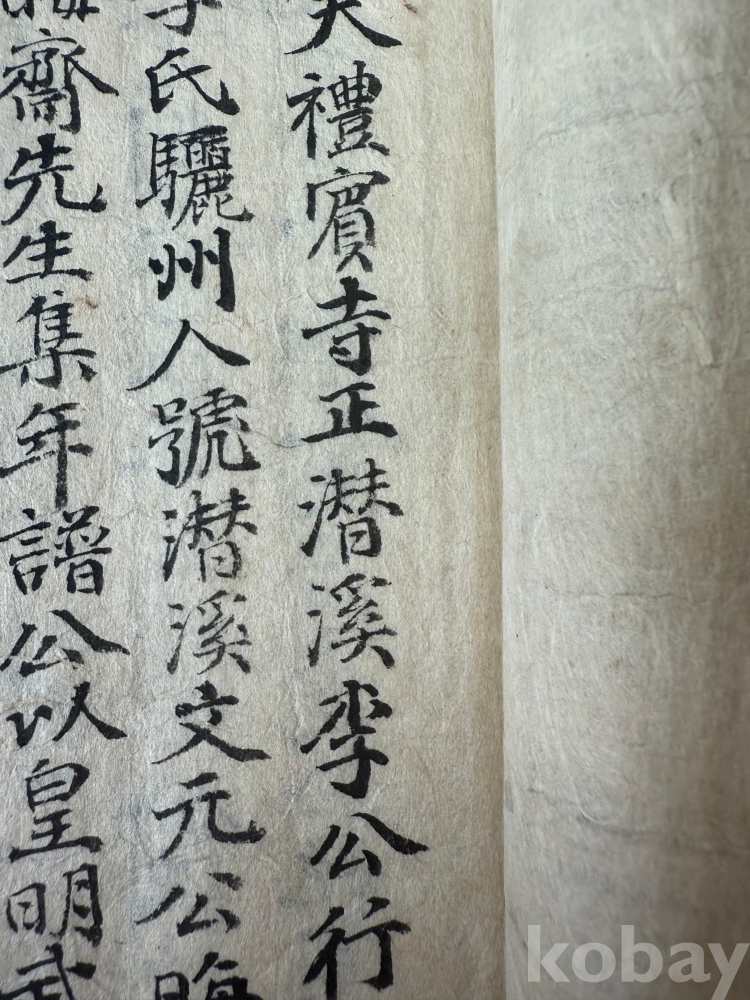 禮賓寺正潛溪李公行
氏驪州人號潛溪文元公晦
齋先生集年譜公以皇明武
kobay